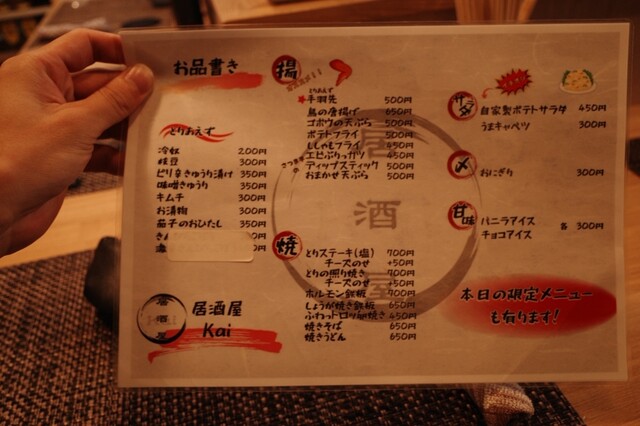 お品書き
とりあえず
冷奴 200円
枝豆 300円
ピリ辛きゅうり漬け 350円
味噌きゅうり 350円
キムチ 300円
お漬物 300円
茄子のおひたし 350円
居酒屋
Kai
揚
とりあえず
手羽先 500円
鳥の唐揚げ 650円
ゴボウの天ぷら 500円
ポテトフライ 500円
ししゃもフライ 450円
エビぷりっカツ 450円
さつま芋の
ディップスティック 500円
おまかせ天ぷら 500円
焼
とりステーキ(塩) 700円
チーズのせ +50円
とりの照り焼き 700円
チーズのせ +50円
ホルモン鉄板 650円
しょうが焼き鉄板 650円
ふわっトロッ卵焼き 450円
焼きそば 650円
焼きうどん 650円
居
酒
屋
サラダ
自家製ポテトサラダ 450円
うまキャベツ 300円
〆
おにぎり 300円
甘味
バニラアイス
チョコアイス
各 300円
本日の限定メニュー
も有ります!